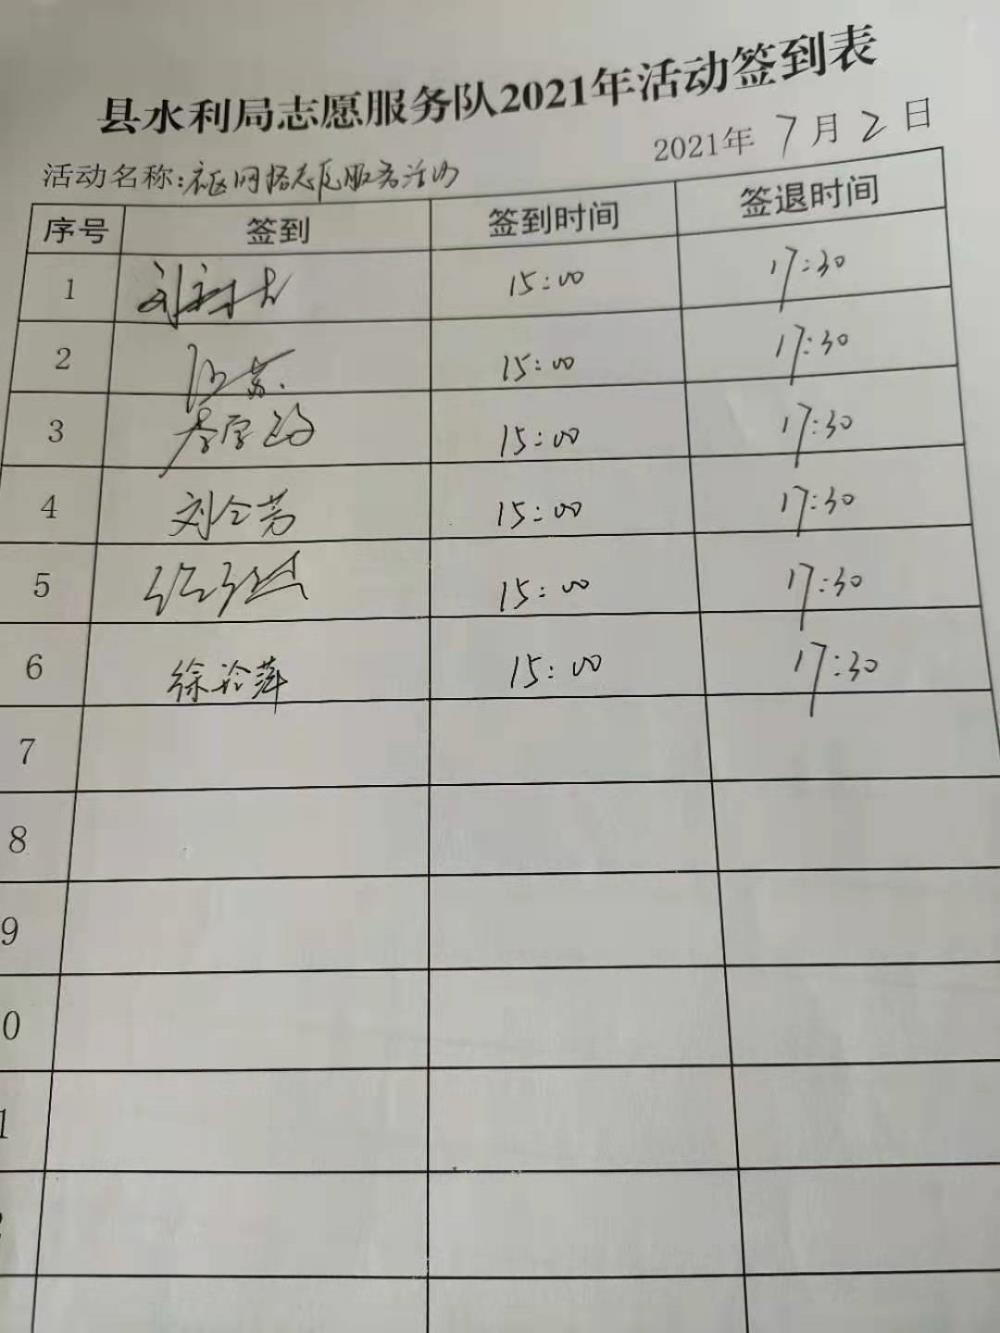 县水利局志愿服务队2021年活动签到表
2021年7月2日
活动名称:社区网格志愿服务活动
序号 签到 签到时间 签退时间
1 15:00 17:30
2 15:00 17:30
3 李 15:00 17:30
4 刘 15:00 17:30
5 15:00 17:30
6 徐 萍 15:00 17:30
7
8
9
0
1